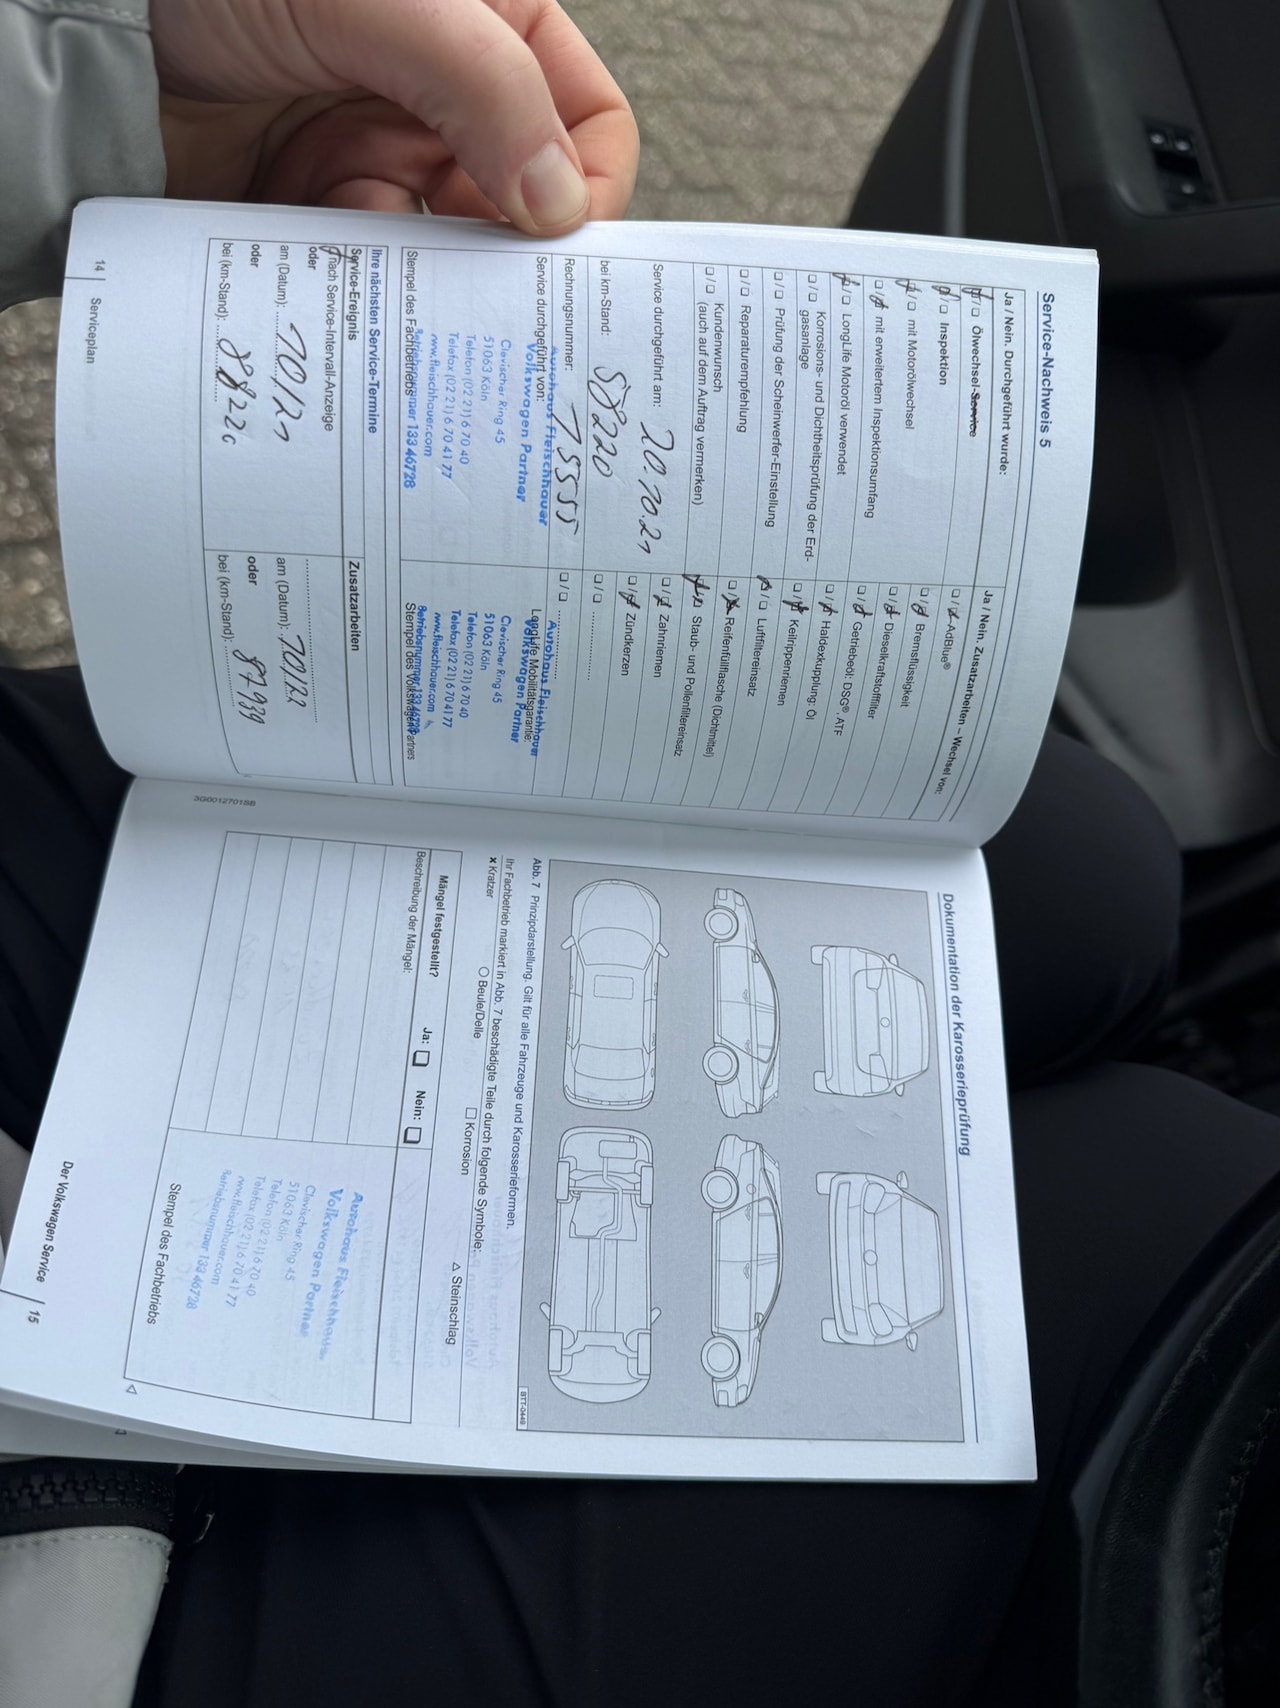 Service-Nachweis 5
Ja / Nein. Durchgeführt wurde:
Ölwechsel-Service
Inspektion
mit Motorölwechsel
mit erweitertem Inspektionsumfang
LongLife Motoröl verwendet
Korrosions- und Dichtheitsprüfung der Erd-
gasanlage
Prüfung der Scheinwerfer-Einstellung
Reparaturempfehlung
Kundenwunsch
(auch auf dem Auftrag vermerken)
Service durchgeführt am: 20.10.21
bei km-Stand: 58220
Rechnungsnummer:
Service durchgeführt von:
Autohaus Fleischhauer
Volkswagen Partner
Clevischer Ring 45
51063 Köln
Telefon (02 21) 6 70 40
Telefax (02 21) 6 70 41 77
www.fleischhauer.com
Betriebsnummer 133 46728
Stempel des Fachbetriebs
Ja / Nein. Zusatzarbeiten – Wechsel von:
AdBlue®
Bremsflüssigkeit
Dieselkraftstofffilter
Getriebeöl: DSG®, ATF
Haldexkupplung: Öl
Keilrippenriemen
Luftfiltereinsatz
Reifenfüllflasche (Dichtmittel)
Staub- und Pollenfiltereinsatz
Zahnriemen
Zündkerzen
LongLife Mobilitätsgarantie:
Autohaus Fleischhauer
Volkswagen Partner
Clevischer Ring 45
51063 Köln
Telefon (02 21) 6 70 40
Telefax (02 21) 6 70 41 77
www.fleischhauer.com
Betriebsnummer 133 46728
Stempel des Volkswagen Partners
Ihre nächsten Service-Termine
Service-Ereignis
nach Service-Intervall-Anzeige
oder
am (Datum):
oder
bei (km-Stand):
Zusatzarbeiten
am (Datum): 10/22
oder
bei (km-Stand): 87939
14 Serviceplan
3G0012701SB
Dokumentation der Karosserieprüfung
BTT-0449
Abb. 7 Prinzipdarstellung. Gilt für alle Fahrzeuge und Karosserieformen.
Ihr Fachbetrieb markiert in Abb. 7 beschädigte Teile durch folgende Symbole:
× Kratzer ○ Beule/Delle □ Korrosion △ Steinschlag
Mängel festgestellt? Ja: Nein:
Beschreibung der Mängel:
Autohaus Fleischhauer
Volkswagen Partner
Clevischer Ring 45
51063 Köln
Telefon (02 21) 6 70 40
Telefax (02 21) 6 70 41 77
www.fleischhauer.com
Betriebsnummer 133 46728
Stempel des Fachbetriebs
Der Volkswagen Service 15